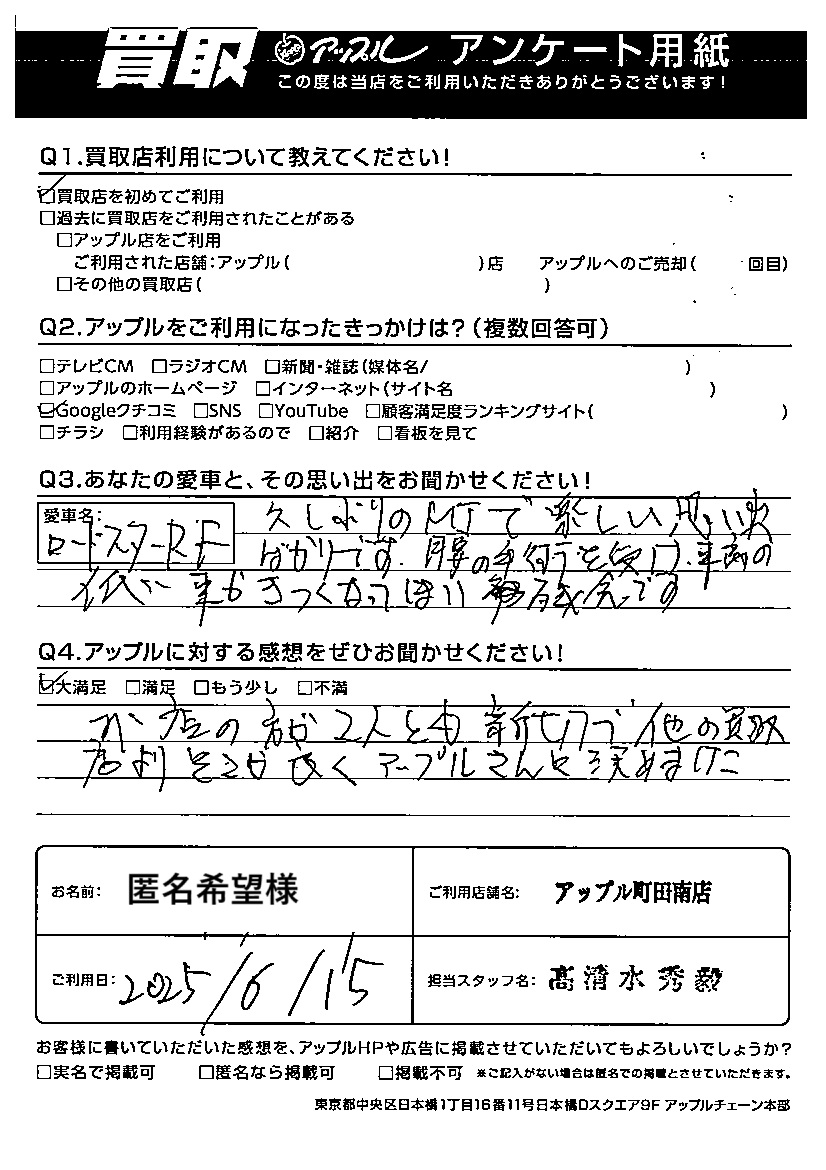 買取 アップル アンケート用紙
この度は当店をご利用いただきありがとうございます!
Q1.買取店利用について教えてください!
☑買取店を初めてご利用
□過去に買取店をご利用されたことがある
□アップル店をご利用
ご利用された店舗:アップル( )店 アップルへのご売却( 回目)
□その他の買取店( )
Q2.アップルをご利用になったきっかけは?(複数回答可)
□テレビCM □ラジオCM □新聞・雑誌(媒体名/ )
□アップルのホームページ □インターネット(サイト名 )
☑Googleクチコミ □SNS □YouTube □顧客満足度ランキングサイト( )
□チラシ □利用経験があるので □紹介 □看板を見て
Q3.あなたの愛車と、その思い出をお聞かせください!
愛車名: ロードスターRF
久しぶりのMTで楽しい思い出
ばかりです。腰の手術を受け、車高の
低い車がきつくなってしまい残念です
Q4.アップルに対する感想をぜひお聞かせください!
☑大満足 □満足 □もう少し □不満
お店の方が2人とも親切で他の買取
店よりそこが良くアップルさんに決めました
お名前: 匿名希望様
ご利用店舗名: アップル町田南店
ご利用日: 2025/6/15
担当スタッフ名: 高清水秀毅
お客様に書いていただいた感想を、アップルHPや広告に掲載させていただいてもよろしいでしょうか?
□実名で掲載可 □匿名なら掲載可 □掲載不可 ※ご記入がない場合は匿名での掲載とさせていただきます。
東京都中央区日本橋1丁目16番11号日本橋Dスクエア9F アップルチェーン本部